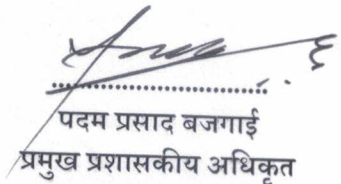 पदम प्रसाद बजगाई
प्रमुख प्रशासकीय अधिकृत